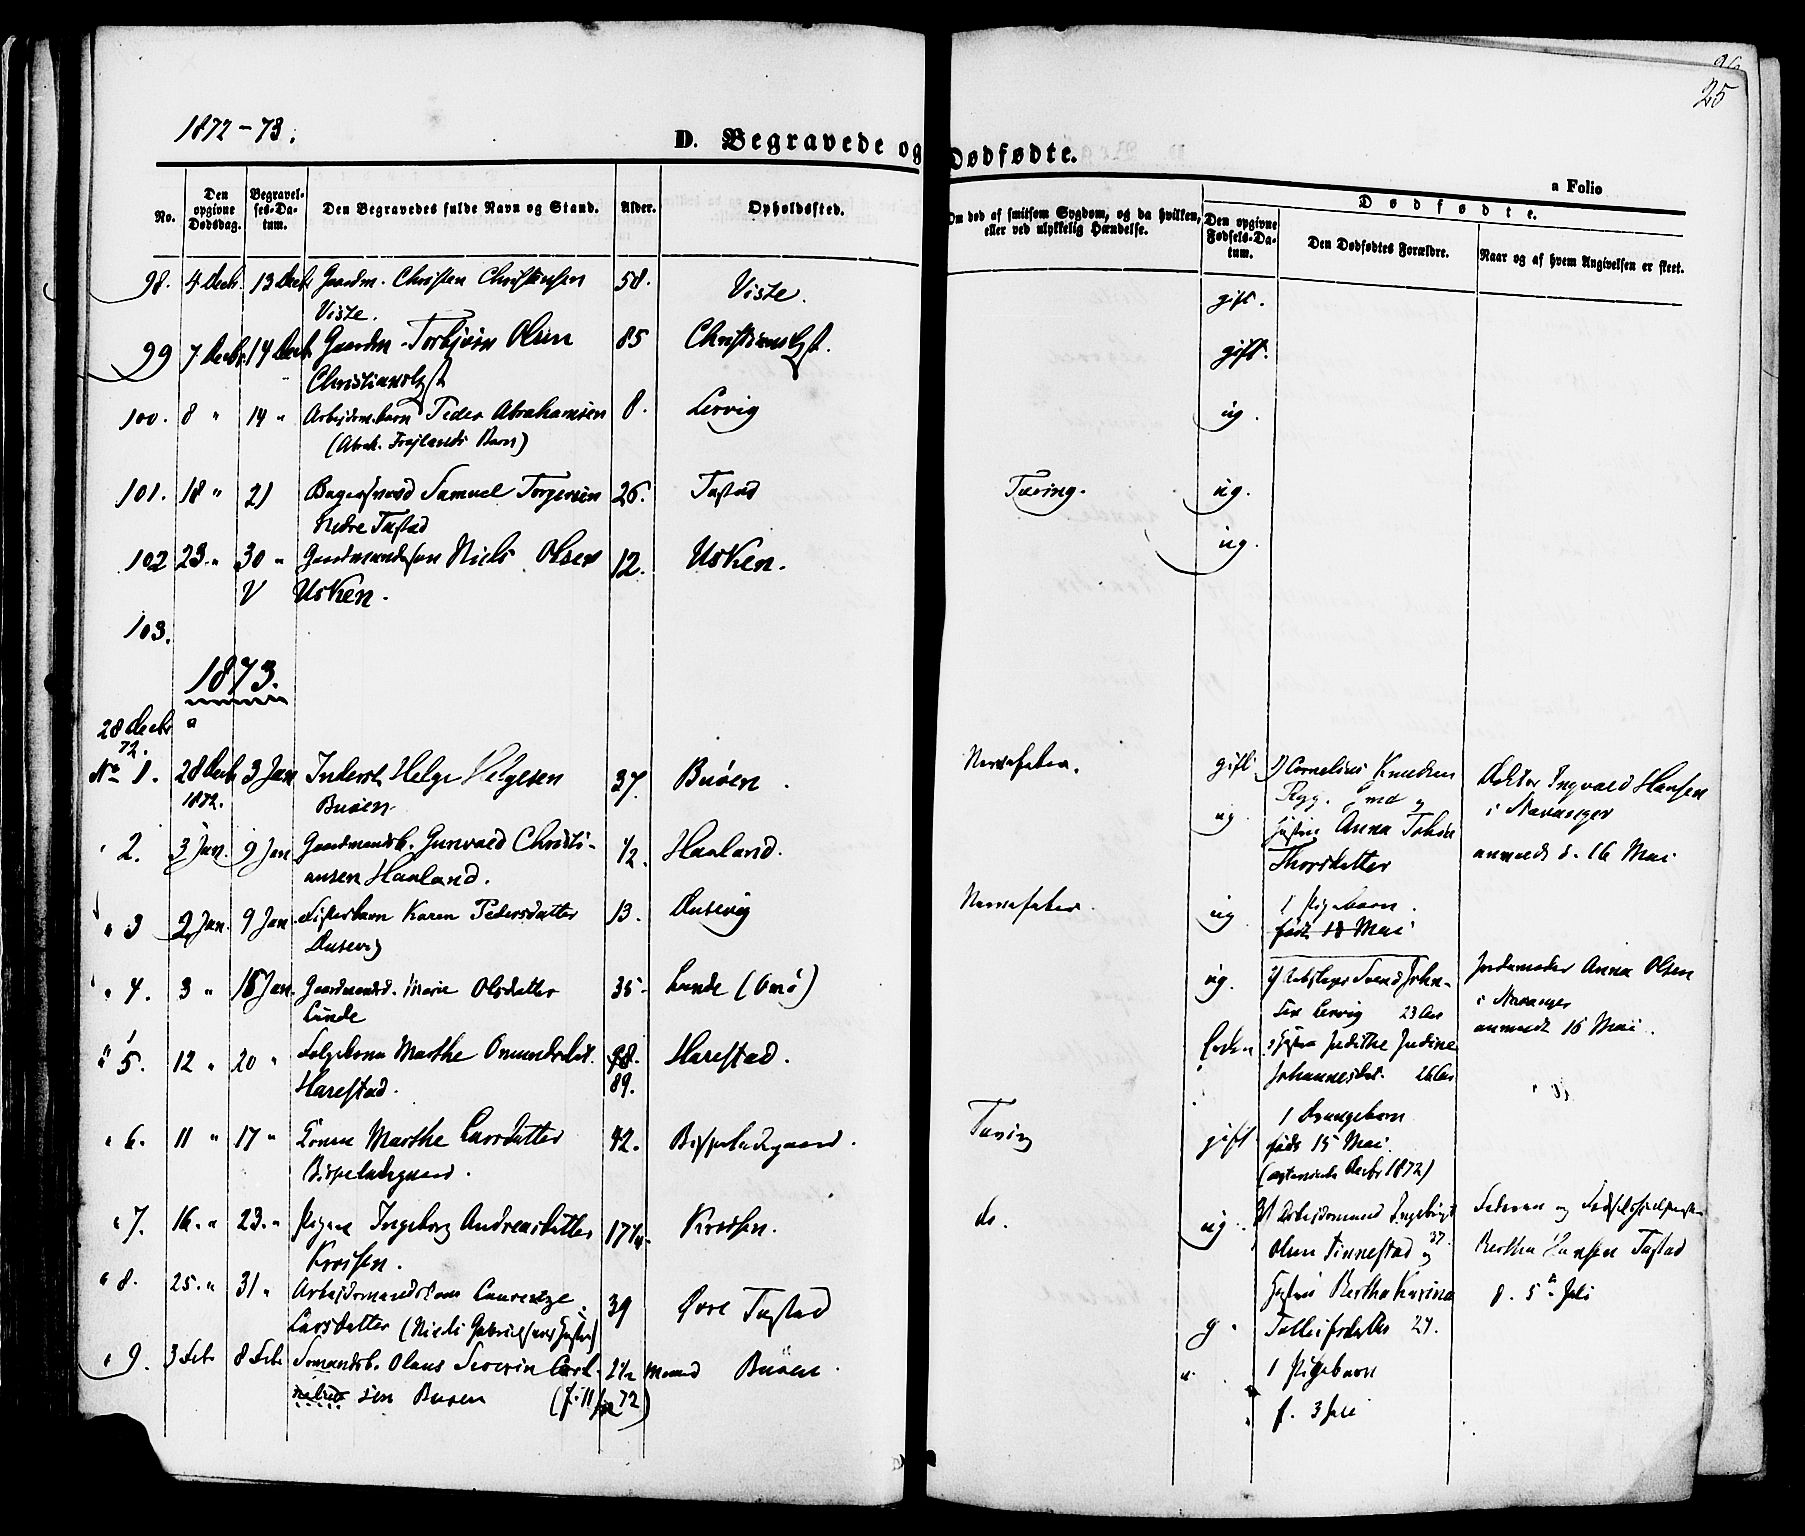 25
1872-73.
D. Begravede og Dødfødte.
a Folio
No.
Den opgivne Dødsdag.
Begravelses-Datum.
Den Begravedes fulde Navn og Stand.
Alder.
Opholdssted.
Om død af smitsom Sygdom, og da hvilken, eller ved ulykkelig Hændelse.
Dødfødte.
Den opgivne Fødsels-Datum.
Den Dødfødtes Forældre.
Naar og af hvem Angivelsen er skeet.
98. 4 Decb. 13 Decb. Gaardm. Christen Christensen 58. Viste. gift.
Viste.
99 7 Decbr. 14 Decb. Gaardm. Torbjørn Olsen 85 Christianslyst. gift.
Christianslyst
100. 8 " 14 " Arbejdsm. barn Peder Abrahamsen 8. Lervig ug.
(Abrah. Frøjlands Barn)
101. 18 " 21 Bagersvend Samuel Torgersen 26. Tastad Tæring. ug.
Nedre Tastad
102 23. " 30 " Gaardmandssøn Niels Olsen 12. Usken. ug.
V Usken.
103.
1873.
28 Decbr
72.
No 1. 28 Decb 3 Jan Inderst Helge Helgesen 37. Buøen. Nervefeber. gift 1) Cornelius Knudsen Doktor Ingvald Hansen
1872. Buøen. Ryg. i Stavanger
" 2. 3 Jan. 9 Jan Gaardmandsb. Gunvald Christi- 1/2. Haaland. ug. Hustru Anna Tobia
ansen Haaland. Thorsdatter anmeldt d. 16 Mai
" 3 2 Jan. 9 Jan Karen Pedersdatter 13. Dusevig Nervefeber. ug 1 Pigebarn.
Dusevig født 18 Mai
" 4. 3 " 16 Jan. Gaardmandsd. Marie Olsdatter 35. Lunde (Omø) ug. 2) Svend John- Jordemoder Anna Olsen
Lunde sen Lervig 23 Aar i Stavanger
anmeldt 16 Mai.
" 5. 12 " 20 " Følgekone Marthe Omundsdat. 98. Harestad. Enken Hustru Judithe Judine
Harestad. 89. Johannesdat. 26 Aar
" 6. 11 " 17 " Konen Marthe Larsdatter 42. Bispeladegaard. Tæring gift 1 Drengebarn
Bispeladegaard. født 15 Mai.
(ægteviede Decbr 1872)
" 7. 16. " 23. " Pigen Ingeborg Andreasdatter 17 Krossen. do. ug. 3) Arbejdsmand Ingebrigt Faderen og
Krossen. Olsen Finnestad 37. og Bertha Hansen Tastad
" 8. 25. " 31 " Arbejdsmandskone Laurentze 39 Øvre Tastad g. Hustru Bertha Karina d. 5te Juli
Larsdatter (Niels Gabrielsens Hustru) Tolleifsdatter 27.
" 9. 3 Feb 8 Feb Sømandsb. Olaus Severin Cor- 2 1/2 Maaned Buøen. 1 Pigebarn
nelius sen Buøen (f. 11/ 72) f. 3 Juli